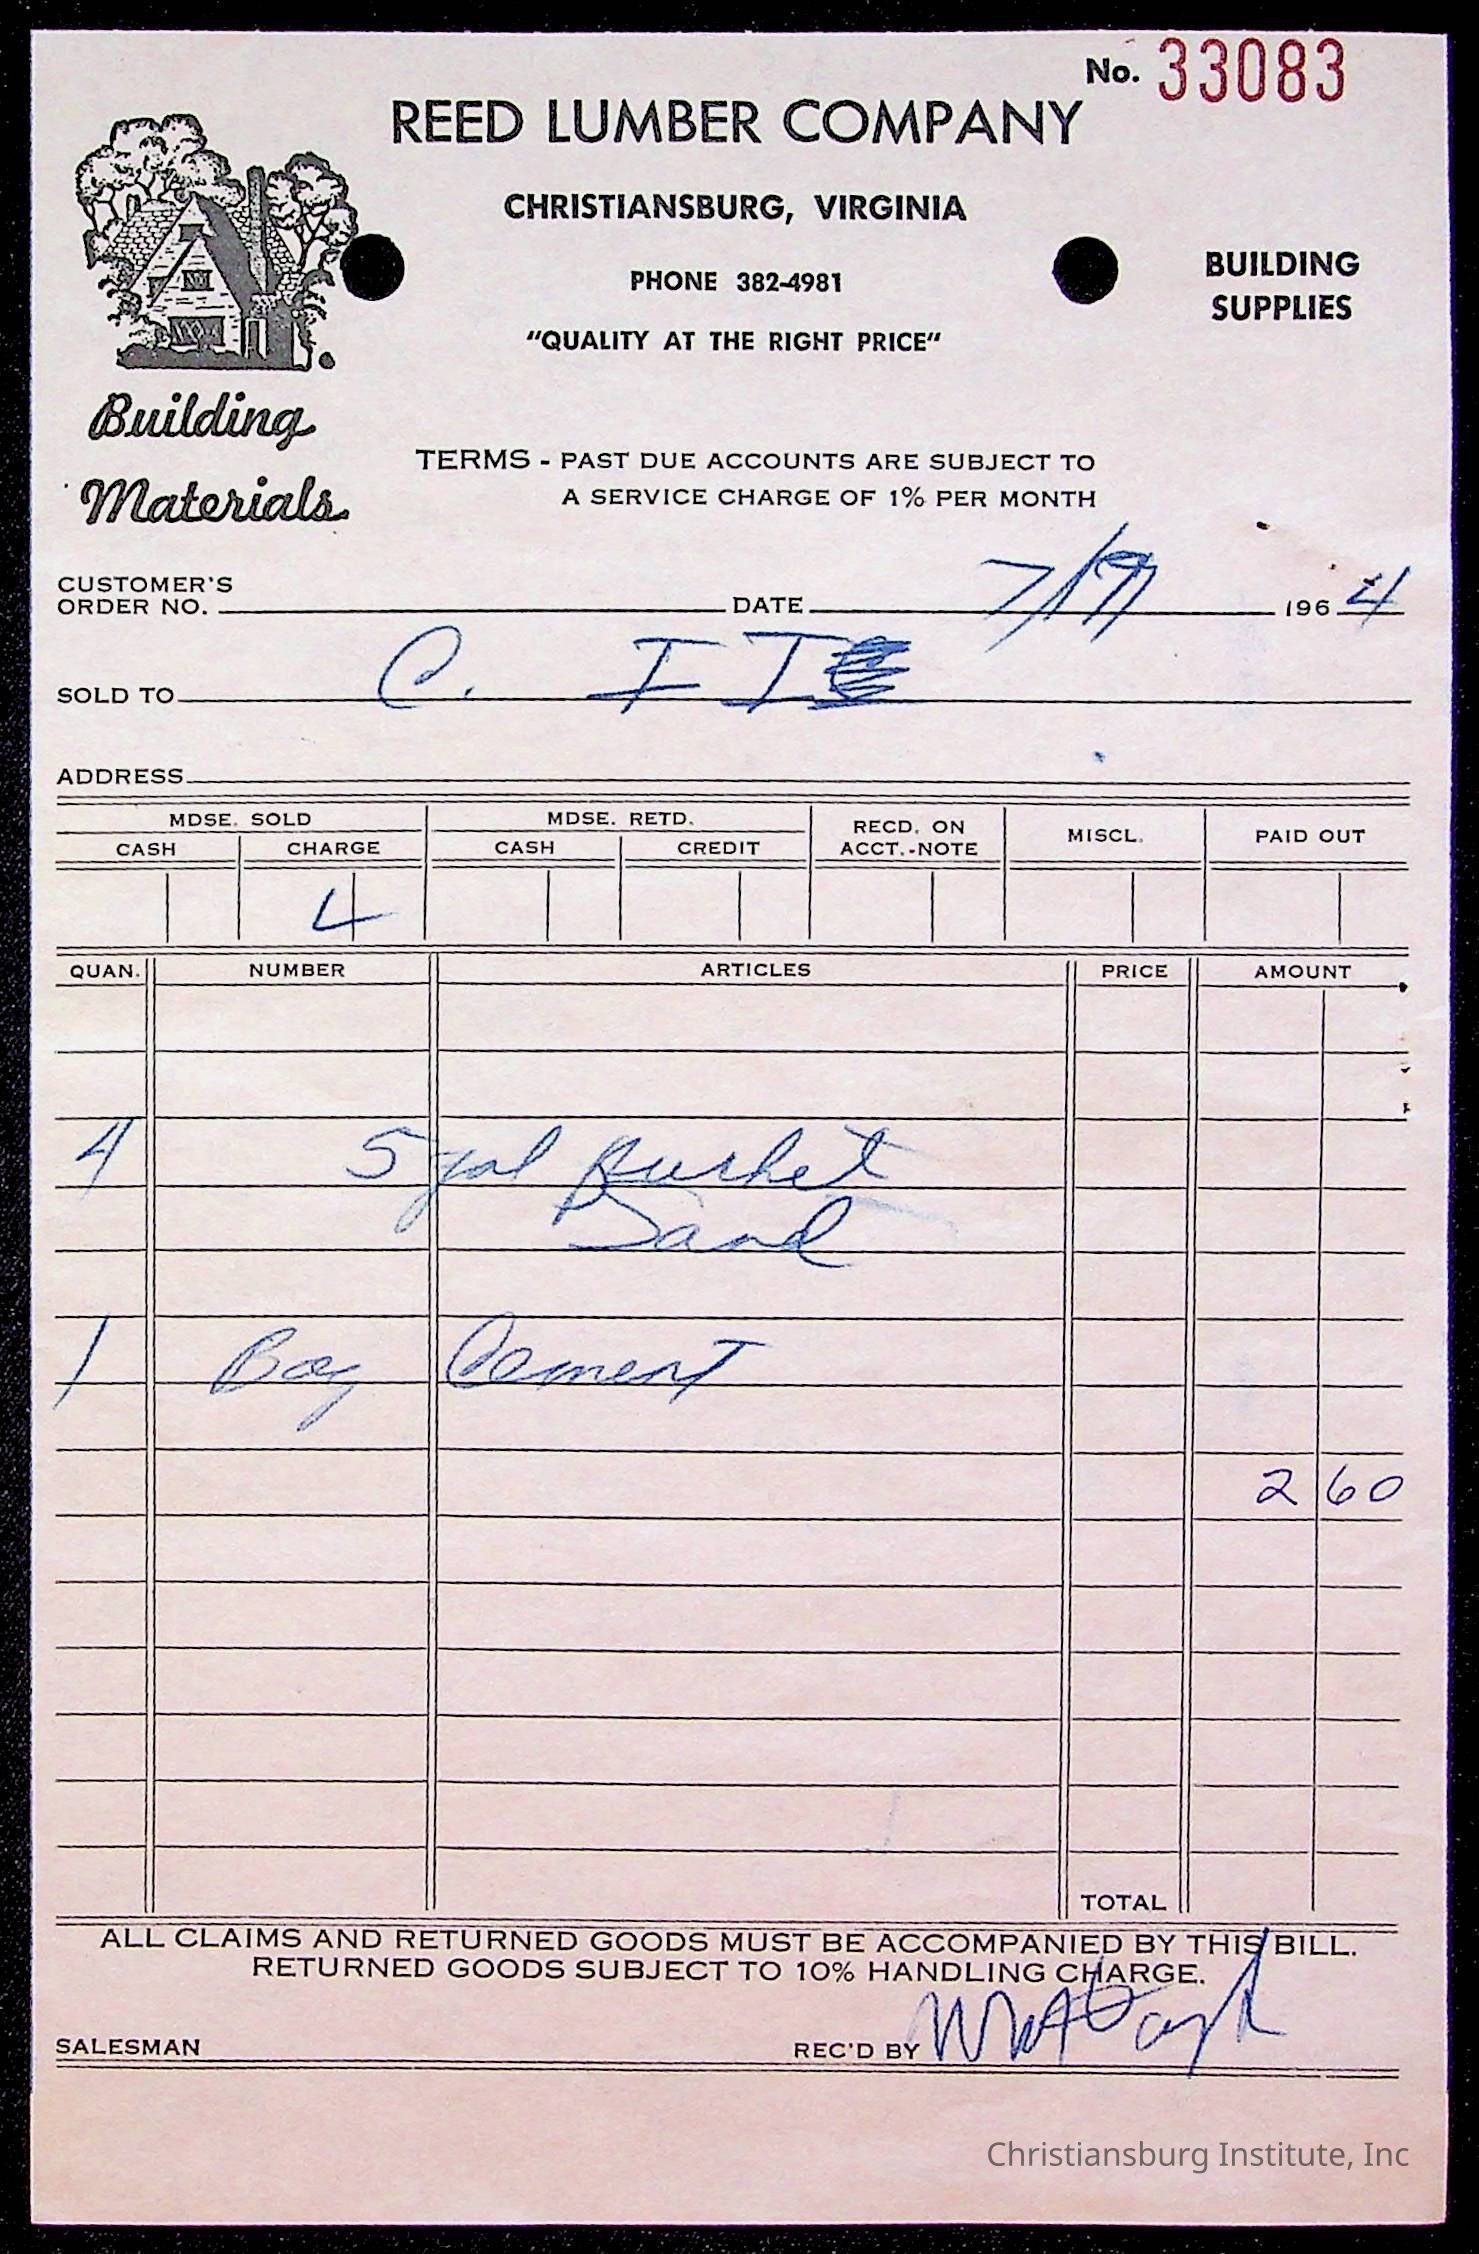 No. 33083
REED LUMBER COMPANY
CHRISTIANSBURG, VIRGINIA
PHONE 382-4981
"QUALITY AT THE RIGHT PRICE"
BUILDING
SUPPLIES
Building
Materials
TERMS - PAST DUE ACCOUNTS ARE SUBJECT TO
A SERVICE CHARGE OF 1% PER MONTH
CUSTOMER'S
ORDER NO. DATE 196 4
SOLD TO C. I
ADDRESS
MDSE. SOLD MDSE. RETD. RECD. ON ACCT.-NOTE MISCL. PAID OUT
CASH CHARGE CASH CREDIT
QUAN. NUMBER ARTICLES PRICE AMOUNT
4 5 gal Bucket
Sand
1 Bag Cement
2 60
TOTAL
ALL CLAIMS AND RETURNED GOODS MUST BE ACCOMPANIED BY THIS BILL.
RETURNED GOODS SUBJECT TO 10% HANDLING CHARGE.
SALESMAN REC'D BY
Christiansburg Institute, Inc